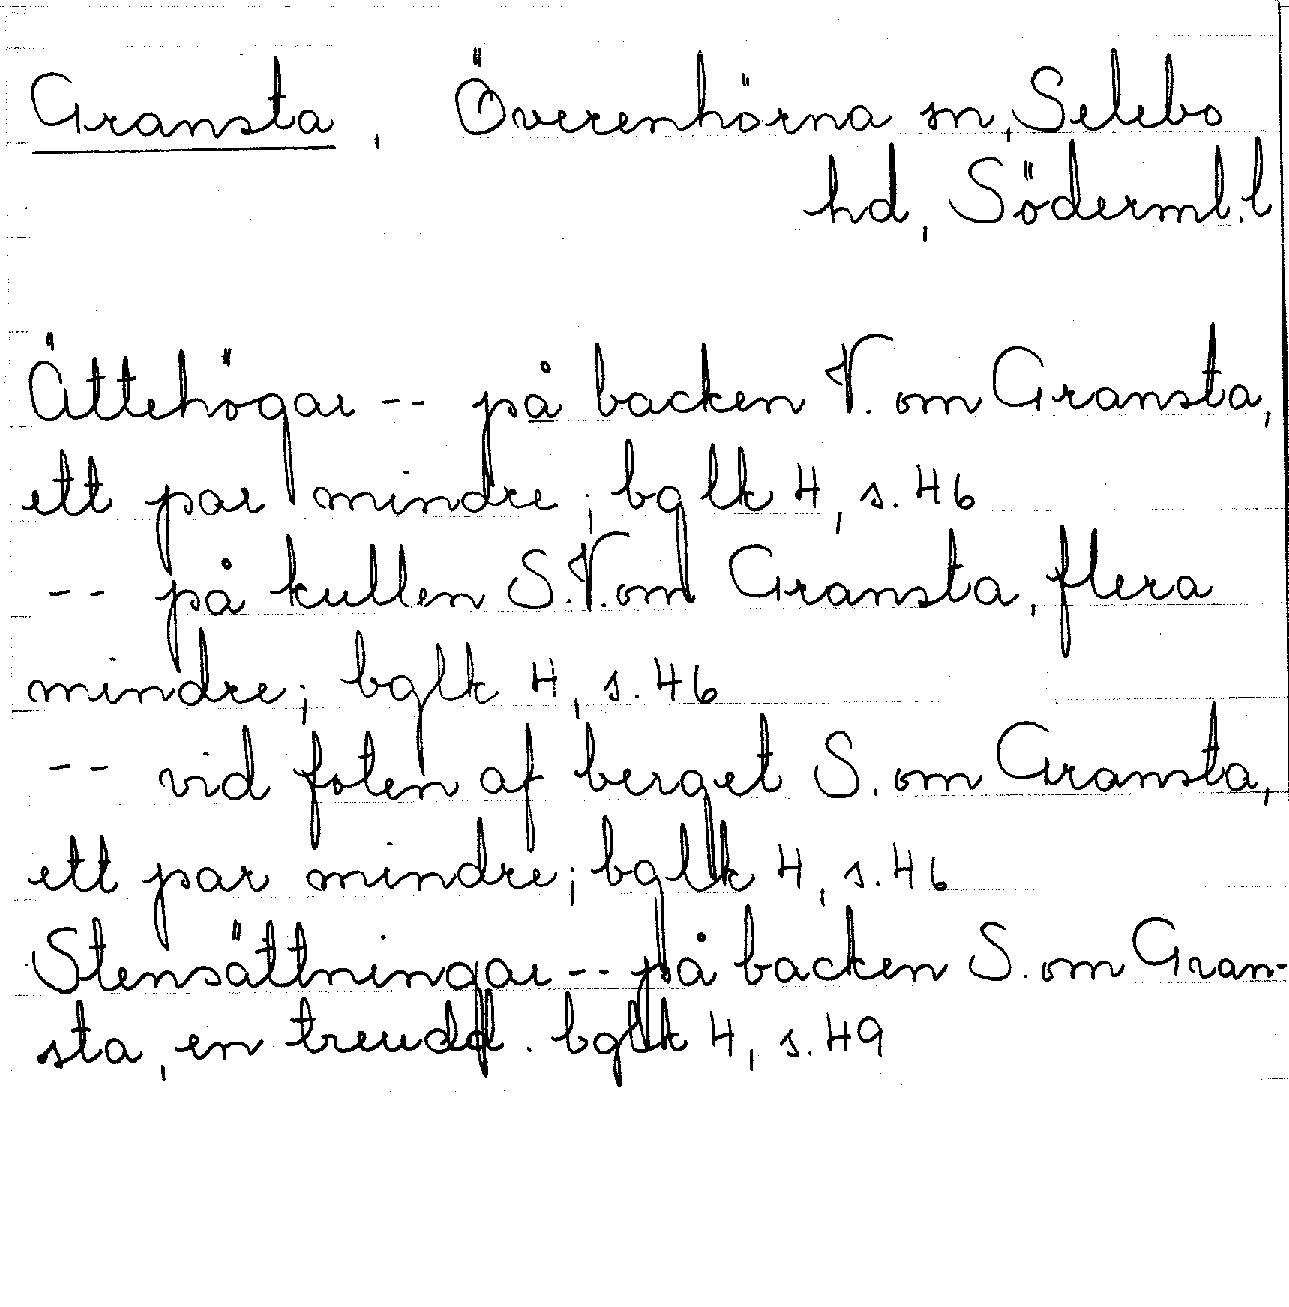 Gransta, Överenhörna sn, Selebo
hd, Söderml. l
Ättehögar -- på backen V. om Gransta,
ett par mindre; bglk 4, s. 46
-- på kullen S.V. om Gransta, flera
mindre; bglk 4, s. 46
-- vid foten af berget S. om Gransta,
ett par mindre; bglk 4, s. 46
Stensättningar -- på backen S. om Gran-
sta, en treudd. bglk 4, s. 49